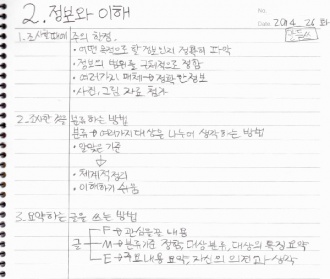 2. 정보와 이해
No.
Date 2014. 26 화
1. 조사할 때의 주의 학정.
• 어떤 목적으로 할 정보인지 정확히 파악
• 정보의 범위를 구체적으로 정함
• 여러가지 매체 → 정확한 정보
• 사진, 그림 자료 첨가
2. 조사한 것을 분류하는 방법
분류 → 여러가지 대상을 나누어 생각하는 방법
• 알맞은 기준
↓
• 체계적 정리
• 이해하기 쉬움
3. 요약하는 글을 쓰는 방법
글
F → 관심을 끈 내용
M → 분류기준 정함, 대상 분류, 대상의 특징 요약
E → 주요 내용 요약, 자신의 의견과 생각